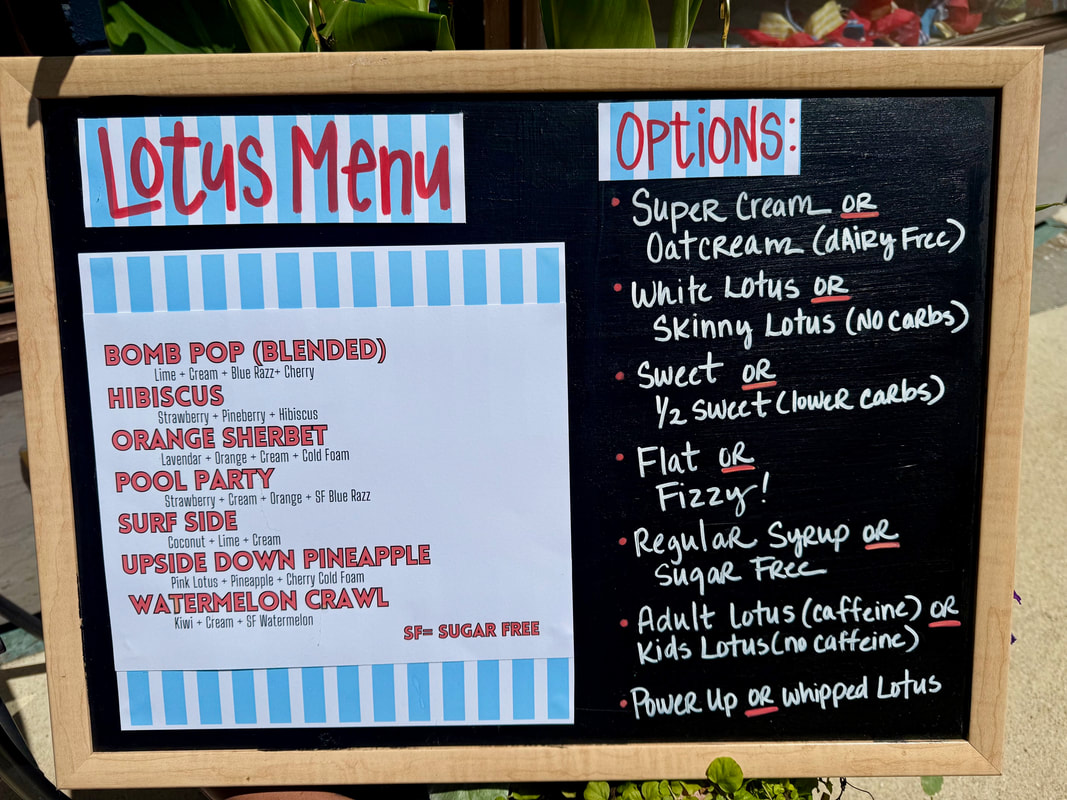 Lotus Menu
BOMB POP (BLENDED)
Lime + Cream + Blue Razz+ Cherry
HIBISCUS
Strawberry + Pineberry + Hibiscus
ORANGE SHERBET
Lavendar + Orange + Cream + Cold Foam
POOL PARTY
Strawberry + Cream + Orange + SF Blue Razz
SURF SIDE
Coconut + Lime + Cream
UPSIDE DOWN PINEAPPLE
Pink Lotus + Pineapple + Cherry Cold Foam
WATERMELON CRAWL
Kiwi + Cream + SF Watermelon
SF= SUGAR FREE
Options:
• Super Cream OR
Oatcream (dairy free)
• White Lotus OR
Skinny Lotus (no carbs)
• Sweet OR
1/2 sweet (lower carbs)
• Flat OR
Fizzy!
• Regular Syrup OR
Sugar Free
• Adult Lotus (caffeine) OR
Kids Lotus (no caffeine)
• Power Up OR whipped Lotus